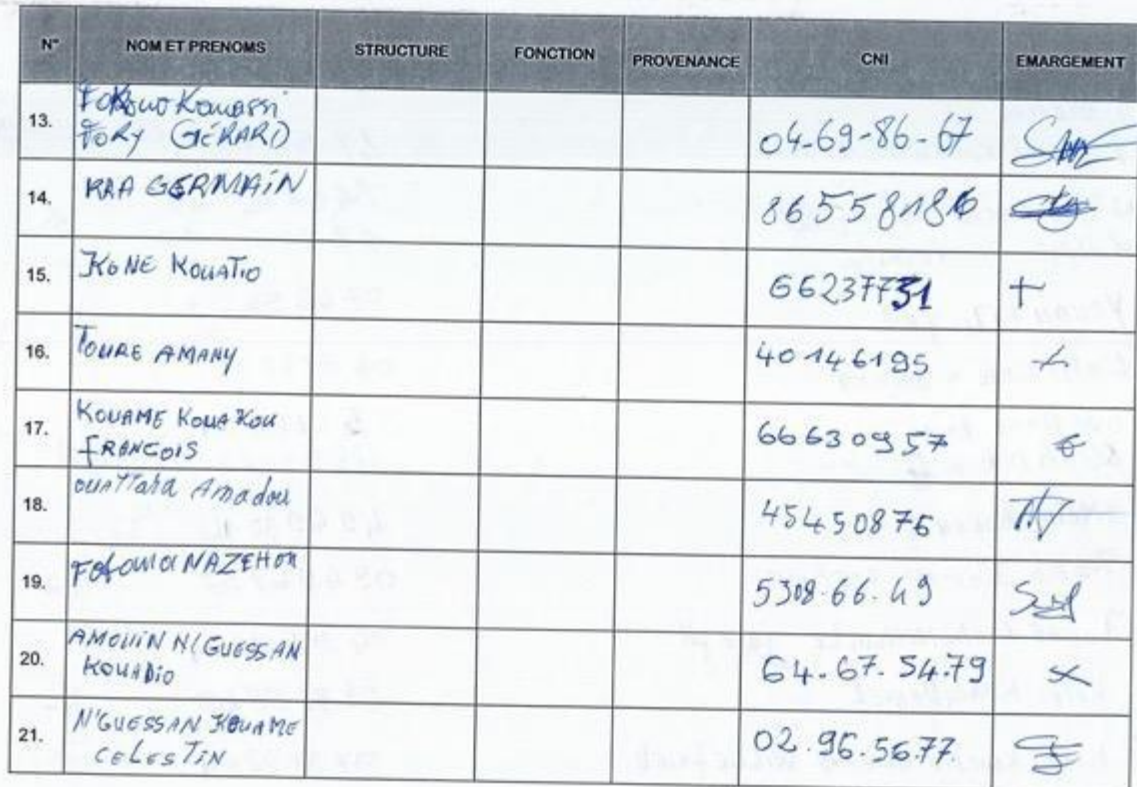 N° NOM ET PRENOMS STRUCTURE FONCTION PROVENANCE CNI EMARGEMENT
Kouassi
13. FORY GÉRARD 04-69-86-67
14. KRA GERMAIN 86558186
15. KONE KOUATIO 66237731
16. TOURE AMANY 40146195
17. KOUAME KOUAKOU
FRANCOIS 66630957
18. OUATTARA Amadou 45450876
19. FOFOWA NAZEHOU 5308.66.49
20. AMOUIN N'GUESSAN
KOUADIO 64.67.54.79
21. N'GUESSAN KOUAME
CELESTIN 02.96.5677